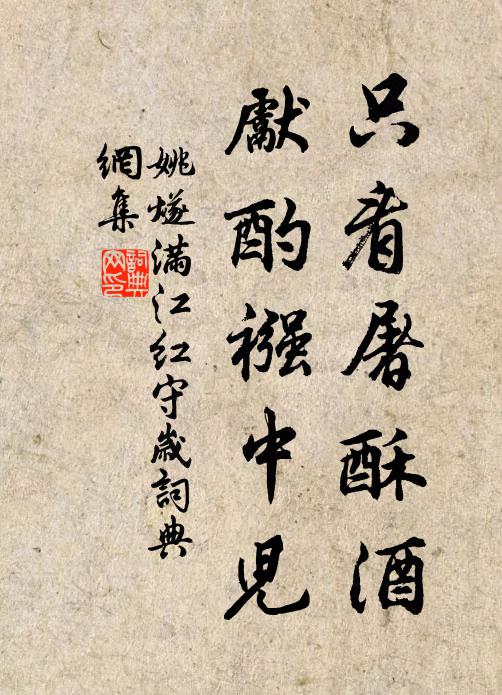 只看屠酥酒
獻酌襁中児
姚燧满江紅守歲詞典
網集
詞典
网印